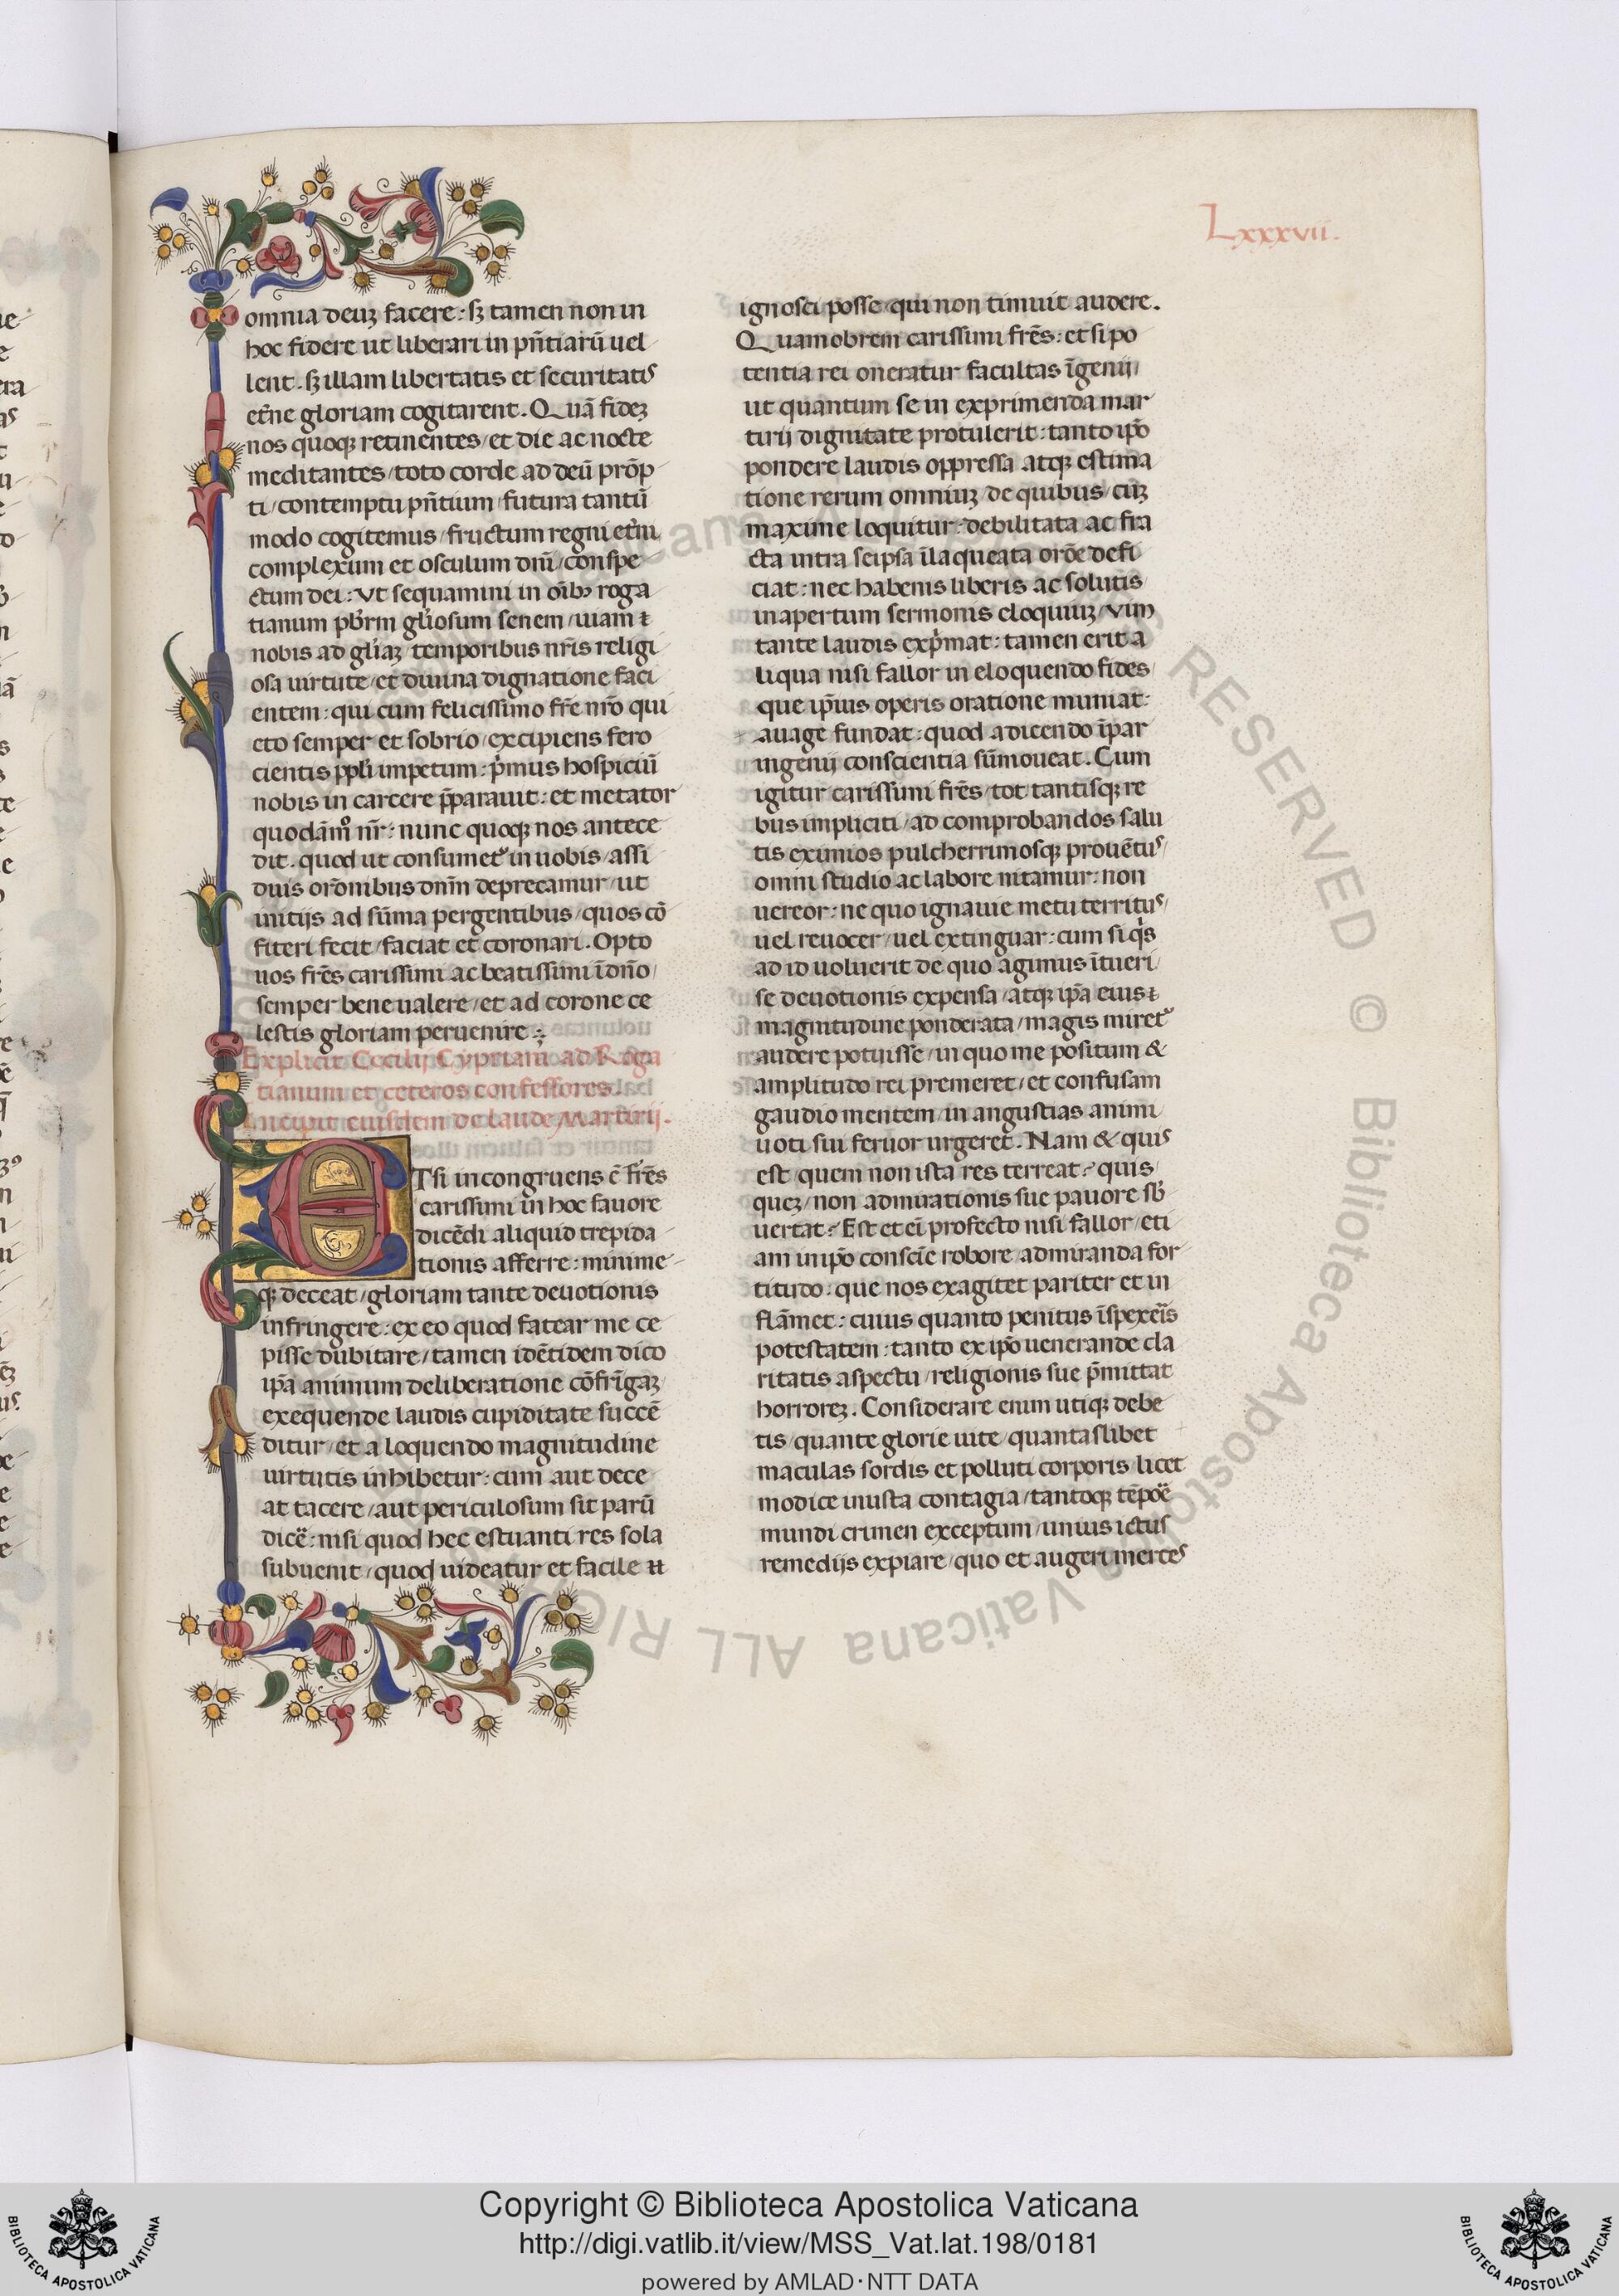 Lxxxvii.
omnia deuʒ facere: sʒ tamen non in
hoc fidere ut liberari in pñtiarū uel
lent. sʒ illam libertatis et securitatis
et̄ne gloriam cogitarent. Quā fideʒ
nos quoqʒ retinentes/et die ac nocte
meditantes/toto corde ad deū prōp
ti/contemptu pñtium/futura tantū
modo cogitemus/fructum regni et̄ni
complexum et osculum dnī/conspe
ctum dei: Vt sequamini in oībꝫ roga
tianum pbr̄m gl̄iosum senem/uiam ⁊
nobis ad gl̄iaʒ/temporibus nr̄is religi
osa uirtute/et diuina dignatione faci
entem: qui cum felicissimo fr̄e nr̄o qui
eto semper et sobrio/excipiens fero
cientis ppl̄i impetum: pͥmus hospiciū
nobis in carcere p̄parauit: et metator
quodām̊ nr̄: nunc quoqʒ nos antece
dit. quod ut consumet᷑ in uobis/assi
duis or̄onibus dnm̄ deprecamur/ut
initijs ad sūma pergentibus/quos cō
fiteri fecit/faciat et coronari. Opto
uos fr̄es carissimi ac beatissimi ī dño/
semper bene ualere/et ad corone ce
lestis gloriam peruenire ;
Explicit Cecilij Cypriani ad Roga
tianum et ceteros confessores.
Incipit eiusdem de laude Martirij.
ETsi incongruens ē fr̄es
carissimi in hoc fauore
dicēdi aliquid trepida
tionis afferre: minime
qʒ deceat/gloriam tante deuotionis
infringere: ex eo quod fatear me ce
pisse dubitare/tamen idētidem dico
ip̄a animum deliberatione cōfrīgaʒ
exequende laudis cupiditate succē
ditur/et a loquendo magnitudine
uirtutis inhibetur: cum aut dece
at tacere/aut periculosum sit parū
dicē: nisi quod hec estuanti res sola
subuenit/quod uideatur et facile ⁊t
ignosci posse qui non timuit audere.
Quamobrem carissimi fr̄es: et si po
tentia rei oneratur facultas īgenij
ut quantum se in exprimenda mar
tirij dignitate protulerit: tanto ip̄o
pondere laudis oppressa atqʒ estima
tione rerum omniuʒ/de quibus/cuʒ
maxime loquitur: debilitata ac fra
cta intra seipsa īlaqueata or̄oē defi
ciat: nec habenis liberis ac solutis
in apertum sermonis eloquiuʒ/vim
tante laudis expͥmat: tamen erit a
liqua nisi fallor in eloquendo fides
que ip̄ius operis oratione muniat:
auage fundat: quod a dicendo īpar
ingenij conscientia sūmoueat. Cum
igitur carissimi fr̄es/tot tantisqʒ re
bus impliciti/ad comprobandos salu
tis eximios pulcherrimosqʒ prouētus/
omni studio ac labore nitamur: non
uereor: ne quo ignauie metu territus/
uel reuocer/uel extinguar: cum si qͥs
ad id uoluerit de quo agimus ītueri
se deuotionis expensa/atqʒ ip̄a eius ⁊
magnitudine ponderata/magis miret᷑
audere potuisse/in quo me positum &
amplitudo rei premeret/et confusam
gaudio mentem/in angustias animi
uoti sui feruor urgeret. Nam & quis
est quem non ista res terreat? quis
queʒ/non admirationis sue pauore sb̄
uertat? Est et eī profecto nisi fallor/eti
am in ip̄o consciē robore admiranda for
titudo: que nos exagitet pariter et in
flāmet: cuius quanto penitus īspexeīs
potestatem: tanto ex ip̄o uenerande cla
ritatis aspectu/religionis sue p̄mittat
horroreʒ. Considerare enim utiqʒ debe
tis/quante glorie uite/quantaslibet
maculas sordis et polluti corporis/licet
modice iniusta contagia/tantoqʒ tēpōē
mundi crimen exceptum/unius ictus
remedijs expiare/quo et augeri merces
Copyright © Biblioteca Apostolica Vaticana
http://digi.vatlib.it/view/MSS_Vat.lat.198/0181
powered by AMLAD·NTT DATA
BIBLIOTECA APOSTOLICA VATICANA
BIBLIOTECA APOSTOLICA VATICANA